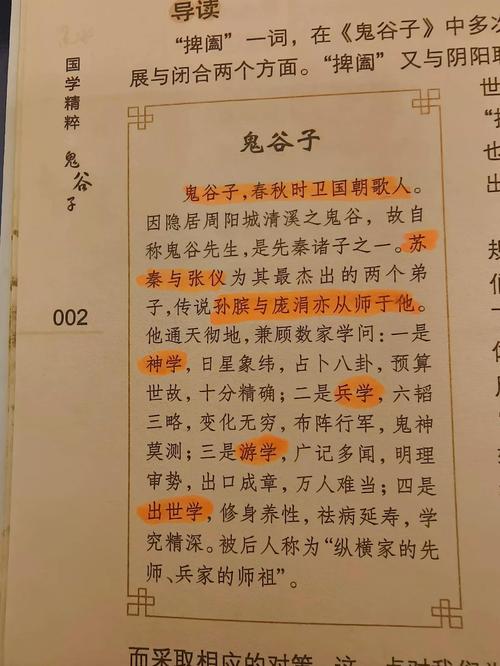 导读
“捭阖”一词，在《鬼谷子》中多次
展与闭合两个方面。“捭阖”又与阴阳
国学精粹 鬼谷子
002
鬼谷子
鬼谷子，春秋时卫国朝歌人。
因隐居周阳城清溪之鬼谷，故自
称鬼谷先生，是先秦诸子之一。苏
秦与张仪为其最杰出的两个弟
子，传说孙膑与庞涓亦从师于他。
他通天彻地，兼顾数家学问：一是
神学，日星象纬，占卜八卦，预算
世故，十分精确；二是兵学，六韬
三略，变化无穷，布阵行军，鬼神
莫测；三是游学，广记多闻，明理
审势，出口成章，万人难当；四是
出世学，修身养性，祛病延寿，学
究精深。被后人称为“纵横家的先
师、兵家的师祖”。
世
也
规
们
而采取相应的对策。这一点对我们